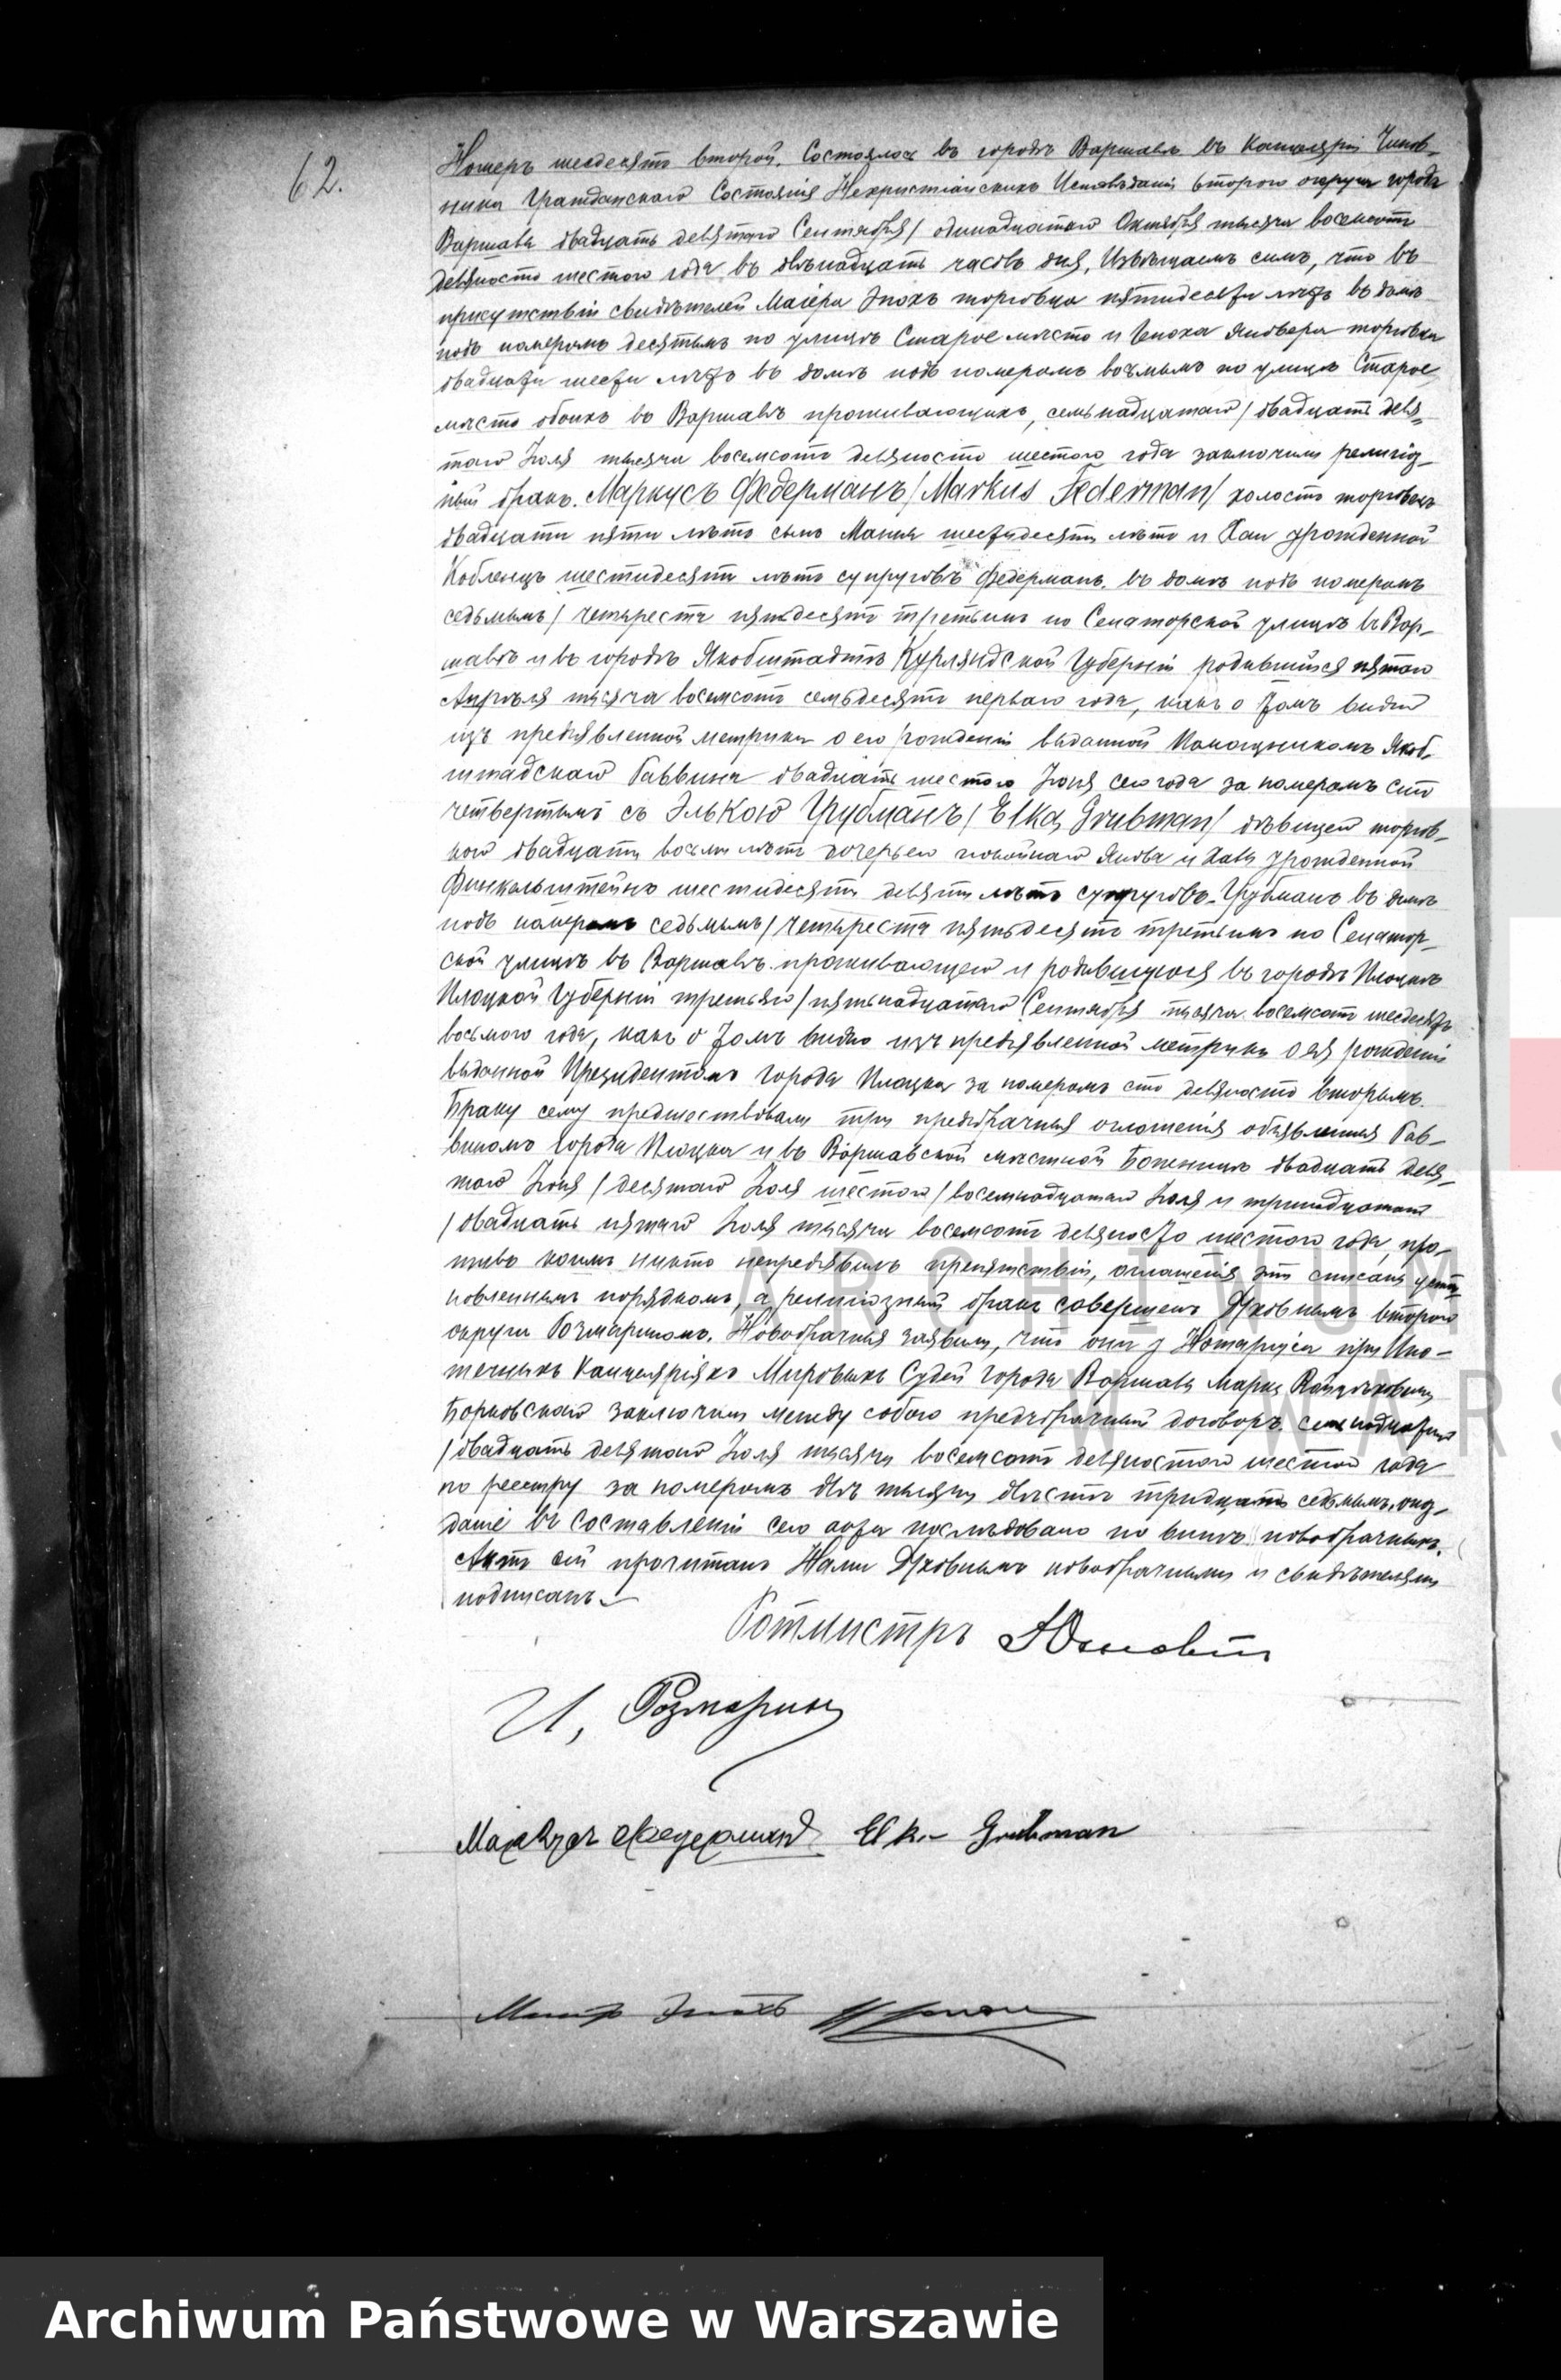 62.
Номеръ шесдесятъ второй. Состоялось въ городѣ Варшавѣ въ Канцеляріи Чинов-
ника Гражданскаго Состоянія Нехристіанскихъ Исповѣданій второго округа города
Варшавы двадцать девятаго Сентября / одинадцатаго Октября тысяча восемсотъ
девяносто шестого года въ двѣнадцать часовъ дня, Извѣщаемъ симъ, что въ
присутствіи свидѣтелей Маіера Эпохъ торговца пятидесяти лѣтъ въ домѣ
подъ номеромъ десятымъ по улицѣ Старое мѣсто и торговца
двадцати шести лѣтъ въ домѣ подъ номеромъ восьмымъ по улицѣ Старое
мѣсто обоихъ въ Варшавѣ проживающихъ, семьнадцатаго / двадцать девя-
таго Іюля тысяча восемсотъ девяносто шестого года заключили религіоз-
ный бракъ. Маркусъ Федерманъ / Markus Federman / холостъ торговецъ
двадцати пяти лѣтъ сынъ шестидесяти лѣтъ и Хаи урожденной
Кобленцъ шестидесяти лѣтъ супруговъ Федерманъ. въ домѣ подъ номеромъ
седьмымъ / четыреста пятьдесятъ третьимъ по Сенаторской улицѣ въ Вар-
шавѣ и въ городѣ Якобштадтѣ Курляндской Губерніи родившійся пятаго
Апрѣля тысяча восемсотъ семьдесятъ перваго года, какъ о томъ видно
изъ предъявленной метрики о его рожденіи выданной Помощникомъ Якоб-
штадскаго Раввина двадцать шестого Іюня сего года за номеромъ сто
четвертымъ съ Элькою Грубманъ / Elka Grubman / дѣвицею торгов-
кою двадцати восьми лѣтъ дочерью покойнаго Якова и Хавы урожденной
Финкельштейнъ шестидесяти девяти лѣтъ супруговъ Грубманъ въ домѣ
подъ номеромъ седьмымъ / четыреста пятьдесятъ третьимъ по Сенатор-
ской улицѣ въ Варшавѣ проживающею и родившуюся въ городѣ Плоцкѣ
Плоцкой Губерніи третьяго / пятьнадцатаго Сентября тысяча восемсотъ шесдесятъ
восьмого года, какъ о томъ видно изъ предъявленной метрики о ея рожденіи
выданной Президентомъ города Плоцка за номеромъ сто девяносто вторымъ.
Браку сему предшествовали три предбрачныя оглашенія объявленныя Рав-
виномъ города Плоцка и въ Варшавской мѣстной Боженицѣ двадцать девя-
таго Іюня / десятаго Іюля шестого / восемнадцатаго Іюля и тринадцатаго
/ двадцать пятаго Іюля тысяча восемсотъ девяносто шестого года, про-
тивъ коимъ никто непредъявилъ препятствій, оглашенія эти списаны уста-
новленнымъ порядкомъ, а религіозный бракъ совершенъ Духовнымъ второго
округа Розмариномъ. Новобрачные заявили, что они у Нотаріуса при Ипо-
течныхъ Канцеляріяхъ Мировыхъ Судей города Варшавы Марка
Борковскаго заключили между собою предчобрачный договоръ семнадцатаго
/ двадцать девятаго Іюля тысяча восемсотъ девяностого шестого года
по реестру за номеромъ двѣ тысячи двѣсти тридцать седьмымъ, опоз-
даніе въ составленіи сего акта послѣдовало по винѣ новобрачныхъ.
Актъ сей прочитанъ Нами Духовнымъ новобрачными и свидѣтелями
подписанъ.
Ротмистръ
И, Розмаринъ
Маркусъ Федерманъ Elka Grubman
Маіеръ Эпохъ
ARCHIWUM
W WARS
Archiwum Państwowe w Warszawie